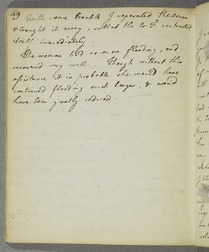 With some trouble I separated the
& brought it away, so that the contracted
itself immediately.
The woman had no more flooding, and
recovered very well. Though without this
assistance it is probable she would have
continued flooding much longer, & would
have been greatly reduced.